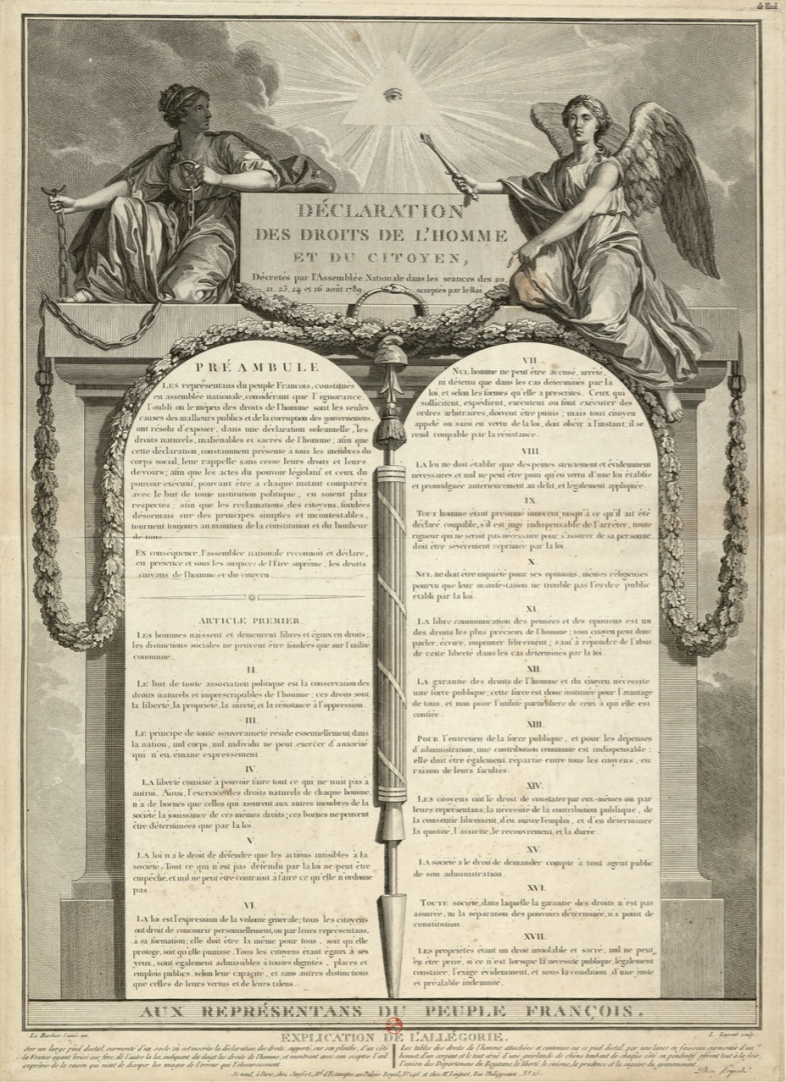 DÉCLARATION
DES DROITS DE L'HOMME
ET DU CITOYEN,
Décretés par l'Assemblée Nationale dans les séances des 20
21. 23. 24 et 26 août 1789. acceptés par le Roi
PRÉAMBULE
LES représentans du peuple Francois, constitués
en assemblée nationale, considerant que l'ignorance,
l'oubli ou le mépris des droits de l'homme sont les seules
causes des malheurs publics et de la corruption des gouvernemens,
ont résolu d'exposer, dans une déclaration solemnelle, les
droits naturels, inaliénables et sacrés de l'homme; afin que
cette déclaration, constamment présente à tous les membres du
corps social, leur rappelle sans cesse leurs droits et leurs
devoirs; afin que les actes du pouvoir législatif et ceux du
pouvoir exécutif, pouvant être à chaque instant comparés
avec le but de toute institution politique, en soient plus
respectés; afin que les reclamations des citoyens, fondées
désormais sur des principes simples et incontestables,
tournent toujours au maintien de la constitution et du bonheur
de tous.
EN conséquence, l'assemblée nationale reconnoit et déclare,
en présence et sous les auspices de l'Être suprême, les droits
suivans de l'homme et du citoyen.
ARTICLE PREMIER.
LES hommes naissent et demeurent libres et égaux en droits;
les distinctions sociales ne peuvent être fondées que sur l'utilité
commune.
II.
LE but de toute association politique est la conservation des
droits naturels et imprescriptibles de l'homme; ces droits sont
la liberté, la propriété, la sureté, et la résistance à l'oppression.
III.
LE principe de toute souveraineté réside essentiellement dans
la nation, nul corps, nul individu ne peut exercer d'autorité
qui n'en émane expressement.
IV.
LA liberté consiste à pouvoir faire tout ce qui ne nuit pas à
autrui. Ainsi, l'exercice des droits naturels de chaque homme,
n'a de bornes que celles qui assurent aux autres membres de la
société la jouissance de ces mêmes droits; ces bornes ne peuvent
être déterminées que par la loi.
V.
LA loi n'a le droit de défendre que les actions nuisibles à la
société. Tout ce qui n'est pas défendu par la loi ne peut être
empêché, et nul ne peut être contraint à faire ce qu'elle n'ordonne
pas.
VI.
LA loi est l'expression de la volonté générale; tous les citoyens
ont droit de concourir personnellement, ou par leurs représentans,
à sa formation; elle doit être la même pour tous, soit qu'elle
protege, soit qu'elle punisse. Tous les citoyens étant égaux à ses
yeux, sont également admissibles à toutes dignités, places et
emplois publics, selon leur capacité, et sans autres distinctions
que celles de leurs vertus et de leurs talens.
VII.
NUL homme ne peut être accusé, arrêté,
ni détenu que dans les cas déterminés par la
loi, et selon les formes qu'elle a prescrites. Ceux qui
sollicitent, expédient, exécutent ou font exécuter des
ordres arbitraires, doivent être punis; mais tout citoyen
appelé ou saisi en vertu de la loi, doit obéir à l'instant, il se
rend coupable par la résistance.
VIII.
LA loi ne doit établir que des peines strictement et évidemment
nécessaires et nul ne peut être puni qu'en vertu d'une loi établie
et promulguée antérieurement au délit, et légalement appliquée.
IX.
TOUT homme étant présumé innocent jusqu'à ce qu'il ait été
déclaré coupable, s'il est jugé indispensable de l'arrêter, toute
rigueur qui ne seroit pas nécessaire pour s'assurer de sa personne
doit être sévèrement réprimée par la loi.
X.
NUL ne doit être inquiété pour ses opinions, mêmes religieuses
pourvu que leur manifestation ne trouble pas l'ordre public
établi par la loi.
XI.
LA libre communication des pensées et des opinions est un
des droits les plus précieux de l'homme; tout citoyen peut donc
parler, écrire, imprimer librement; sauf à répondre de l'abus
de cette liberté dans les cas déterminés par la loi.
XII.
LA garantie des droits de l'homme et du citoyen nécessite
une force publique; cette force est donc instituée pour l'avantage
de tous, et non pour l'utilité particulière de ceux à qui elle est
confiée.
XIII.
POUR l'entretien de la force publique, et pour les dépenses
d'administration, une contribution commune est indispensable;
elle doit être également répartie entre tous les citoyens, en
raison de leurs facultés.
XIV.
LES citoyens ont le droit de constater par eux-mêmes ou par
leurs représentans, la nécessité de la contribution publique, de
la consentir librement, d'en suivre l'emploi, et d'en déterminer
la quotité, l'assiette, le recouvrement, et la durée.
XV.
LA société a le droit de demander compte à tout agent public
de son administration.
XVI.
TOUTE société, dans laquelle la garantie des droits n'est pas
assurée, ni la séparation des pouvoirs déterminée, n'a point de
constitution.
XVII.
LES propriétés étant un droit inviolable et sacré, nul ne peut
en être privé, si ce n'est lorsque la nécessité publique, légalement
constatée, l'exige évidemment, et sous la condition d'une juste
et préalable indemnité.
AUX REPRÉSENTANS DU PEUPLE FRANÇOIS.
Le Barbier l'ainé inv.
L. Laurent sculp.
EXPLICATION DE L'ALLÉGORIE.